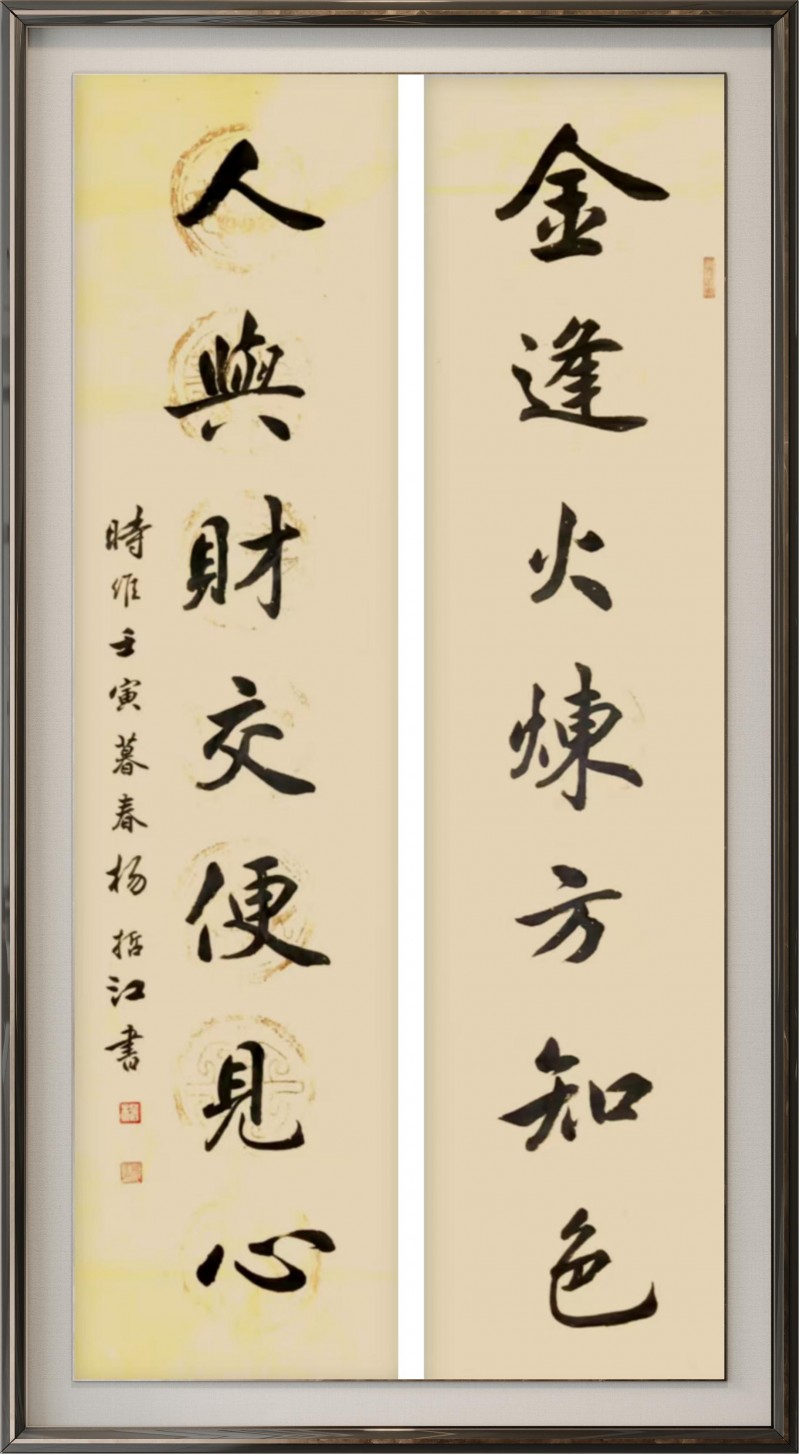 金逢火煉方知色
人與財交便見心
時維壬寅暮春杨括江書